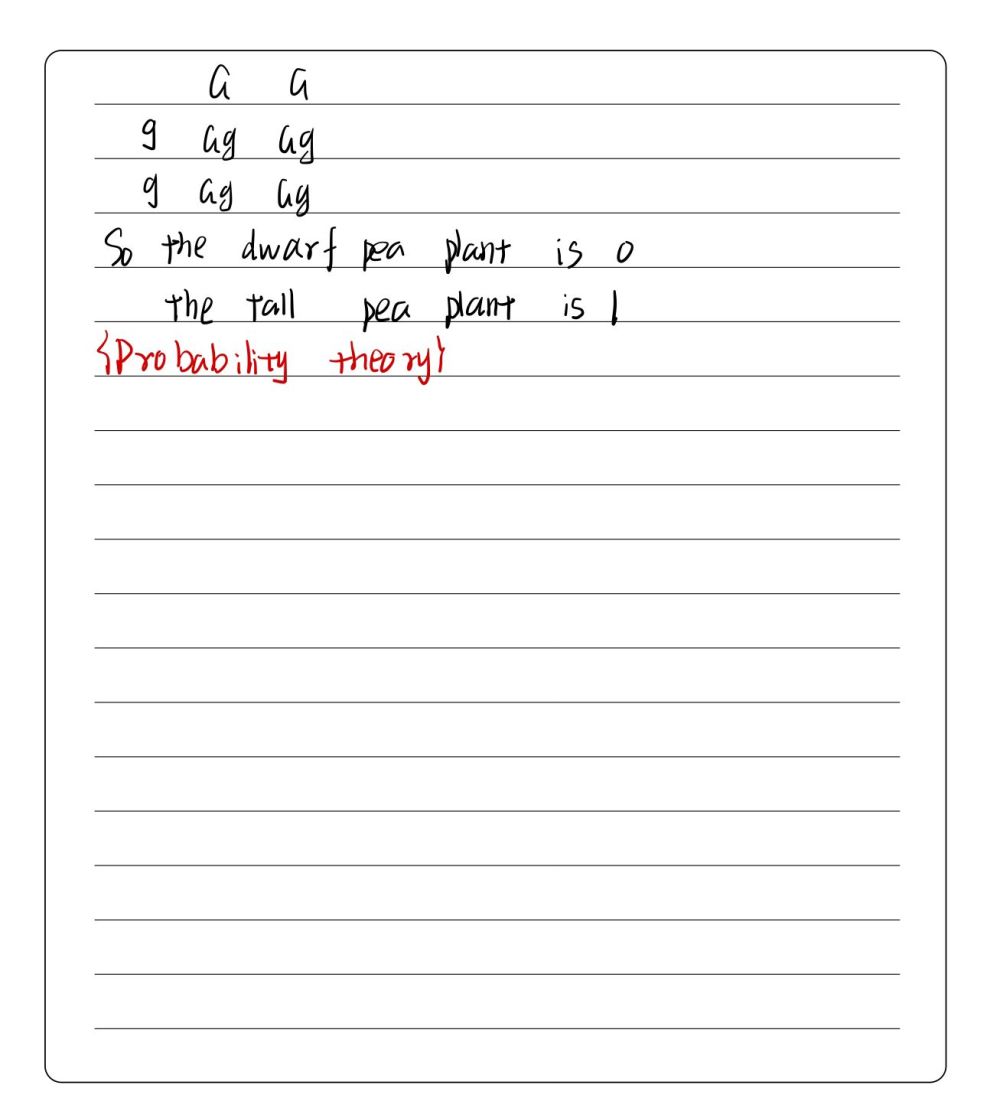 G G
g Gg Gg
g Gg Gg
So the dwarf pea plant is 0
the tall pea plant is 1
{Probability theory}